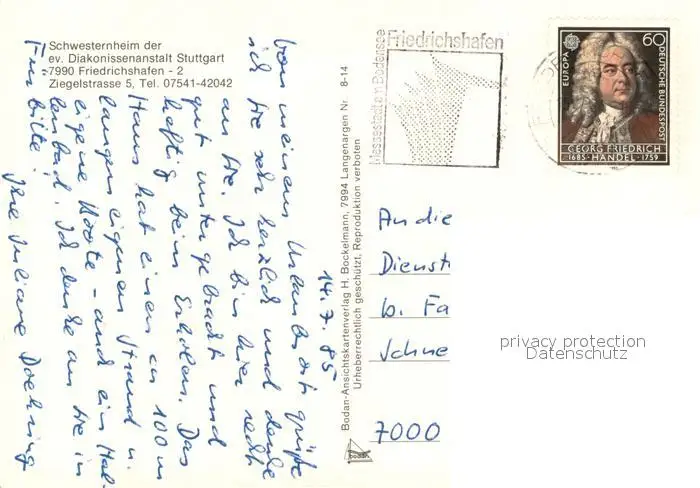 Schwesternheim der
ev. Diakonissenanstalt Stuttgart
7990 Friedrichshafen - 2
Ziegelstrasse 5, Tel. 07541-42042
14.7.85
Von meinem Urlaubsort grüße
ich Sie sehr herzlich und denke
an Sie. Ich bin hier recht
gut untergebracht und
kräftig beim Erholen. Das
Haus hat einen ca 100 m
langen eigenen Strand u.
eigene Boote - und ein Hal-
lenbad. Ich denke an Sie in
Fürbitte! Ihre Juliane Doehring
Bodan-Ansichtskartenverlag H. Bockelmann, 7994 Langenargen Nr. 8-14
Urheberrechtlich geschützt, Reproduktion verboten
bodan
Messestadt am Bodensee
Friedrichshafen
EUROPA
60
DEUTSCHE BUNDESPOST
GEORG FRIEDRICH
1685 · HÄNDEL · 1759
An die
Dienst
b. Fa
Schne
7000
privacy protection
Datenschutz